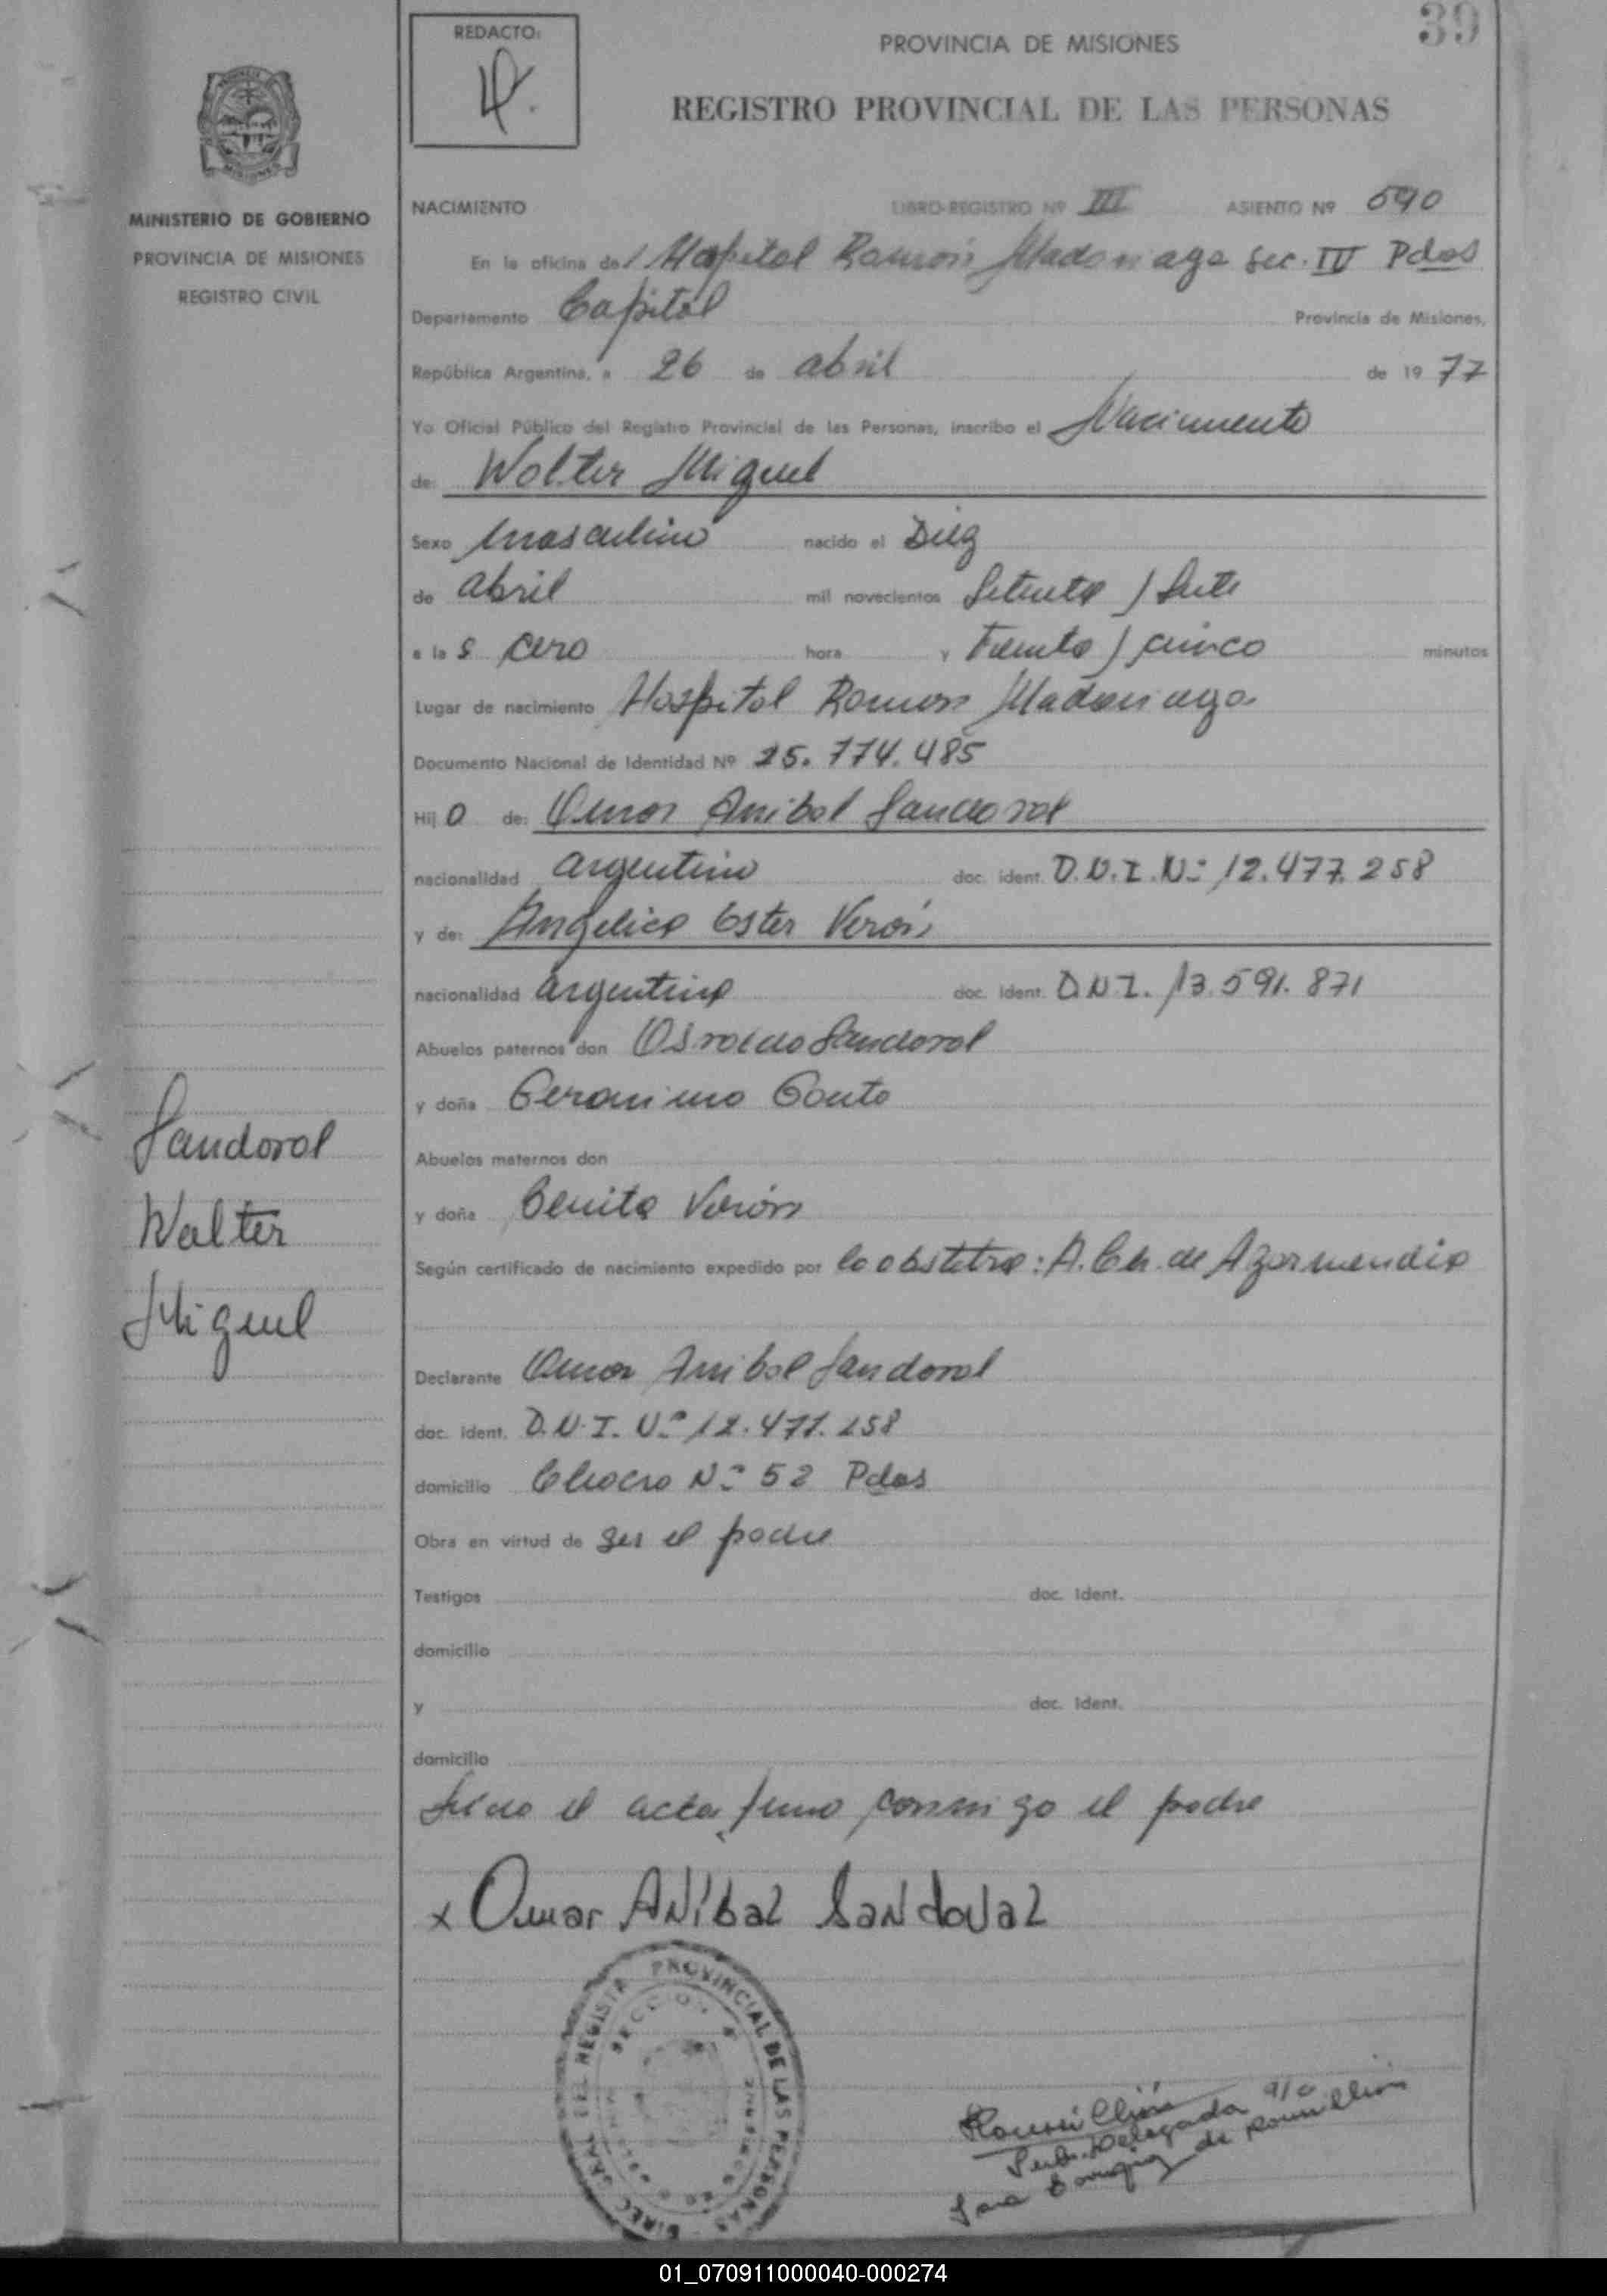 39
REDACTO:
PROVINCIA DE MISIONES
REGISTRO PROVINCIAL DE LAS PERSONAS
MISIONES
MINISTERIO DE GOBIERNO
PROVINCIA DE MISIONES
REGISTRO CIVIL
NACIMIENTO LIBRO-REGISTRO Nº III ASIENTO Nº 590
En la oficina del Hospital Ramón Madariaga Sec. IV Pdas
Departamento Capital Provincia de Misiones,
República Argentina, a 26 de abril de 19 77
Yo Oficial Público del Registro Provincial de las Personas, inscribo el Nacimiento
de: Walter Miguel
Sexo masculino nacido el Diez
de abril mil novecientos Setenta y Siete
a la s cero hora y Treinta y cinco minutos
Lugar de nacimiento Hospital Ramon Madariaga
Documento Nacional de Identidad Nº 25.774.485
Hij o de: Omar Anibal Sandoval
nacionalidad argentino doc. ident. D.N.I. Nº 12.477.258
y de: Angelica Ester Verón
nacionalidad argentina doc. ident. D.N.I. 13.591.871
Abuelos paternos don Osvaldo Sandoval
y doña Geronima Gouto
Abuelos maternos don
y doña Benita Verón
Según certificado de nacimiento expedido por la obstetra: A. Ch. de Azarmendia
Sandoval
Walter
Miguel
Declarante Omar Anibal Sandoval
doc. ident. D.N.I. Nº 12.477.258
domicilio Chacra Nº 52 Pdas
Obra en virtud de ser el padre
Testigos doc. ident.
domicilio
y doc. ident.
domicilio
Leída el acta firma conmigo el padre
x Omar ANibal SaNdoVal
DIREC. GRAL. DEL REGISTR. PROVINCIAL DE LAS PERSONAS
SECCION 4
Sub. Delegada a/c
Sara de Roumillion
01_070911000040-000274